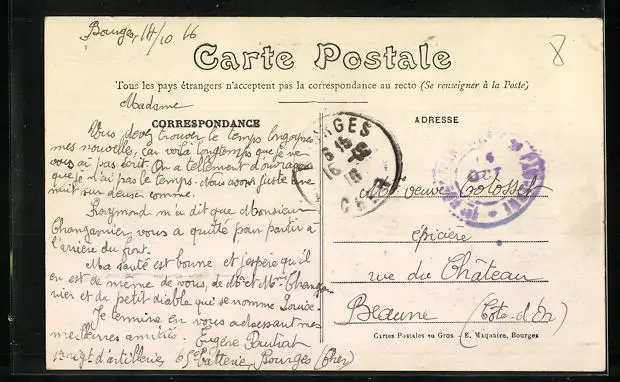 Bourges, 14/10 16
8
Carte Postale
Tous les pays étrangers n'acceptent pas la correspondance au recto (Se renseigner à la Poste)
Madame
CORRESPONDANCE
Vous devez trouver le temps long après
mes nouvelles, car voilà longtemps que je ne
vous ai pas écrit. On a tellement d'ouvrages
que je n'ai pas le temps. Nous avons juste une
nuit sur deux comme.
Raymond m'a dit que Monsieur
Changarnier vous a quitté pour partir à
l'arrière du front.
Ma santé est bonne et j'espère qu'il
en est de même de vous, de Mr et Mme Changar-
nier et du petit diable que se nomme Louise.
Je termine en vous adressant mes
meilleures amitiés. Eugène Pauliat
1er régt d'artillerie, 65e batterie, Bourges (Cher)
ADRESSE
BOURGES
CHER
OCT
Me veuve Colosset
épicière
rue du Château
Beaune (Côte-d'Or)
Cartes Postales en Gros. - E. Maquaire, Bourges